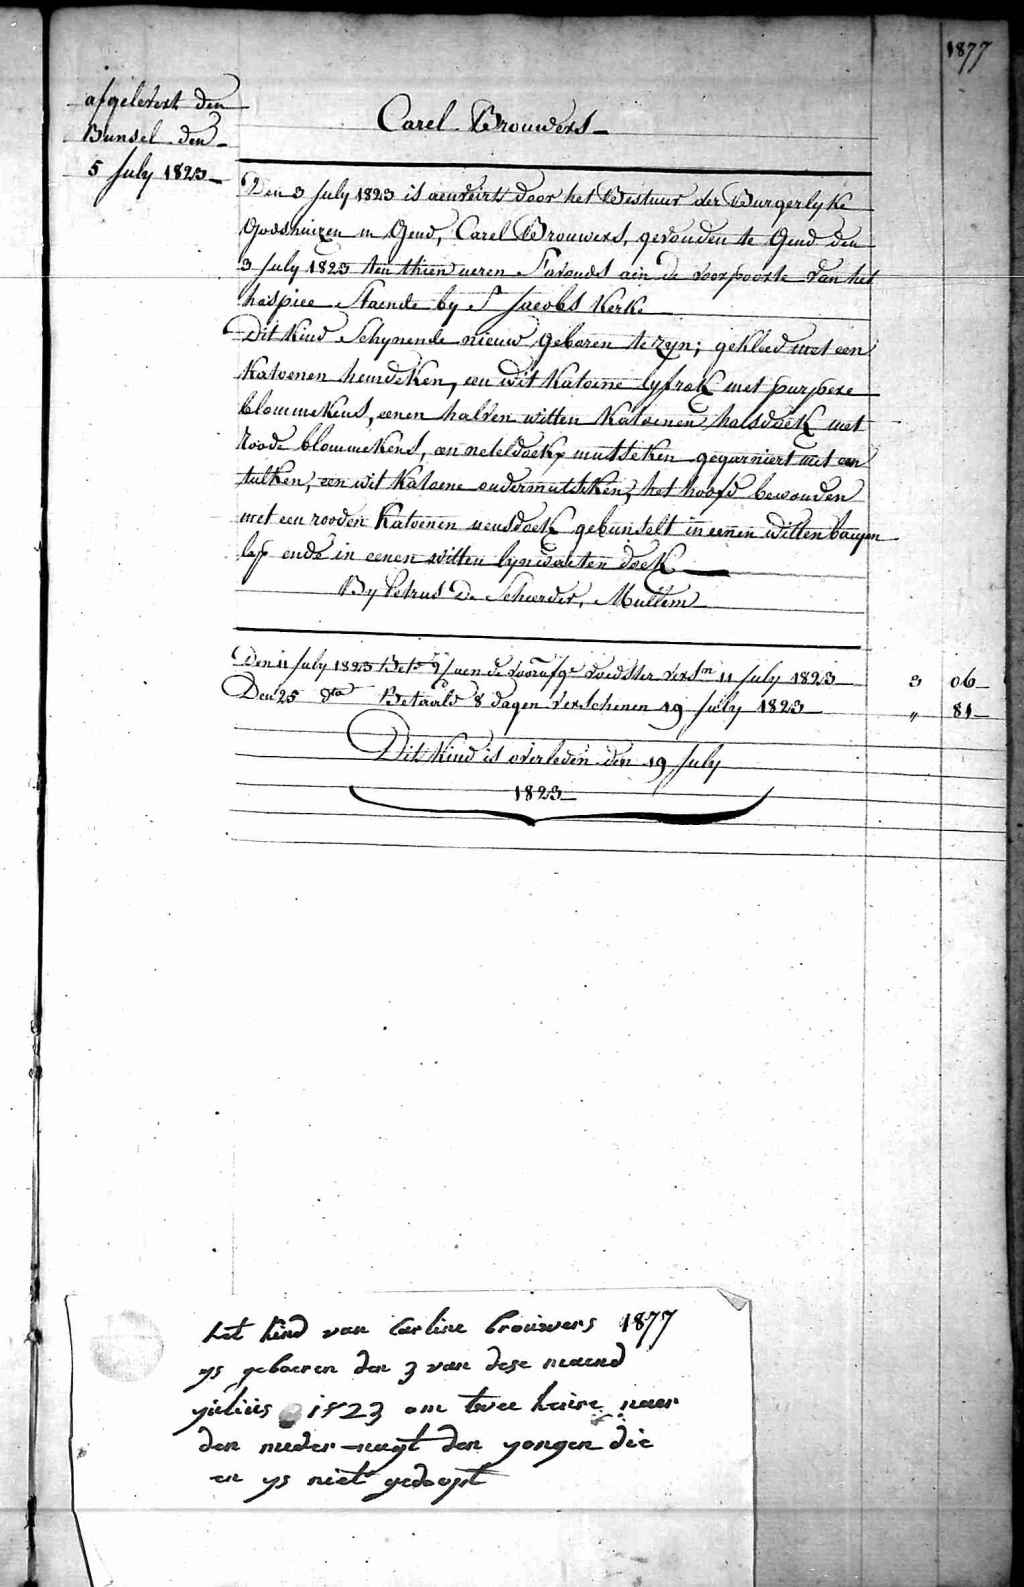 1877
afgelevert den
Bunsel den
5 July 1823
Carel Brouwers
Den 3 July 1823 is aenveirt door het Bestuur der Burgerlyke
Godshuizen in Gend, Carel Brouwers, gevonden te Gend den
3 July 1823 ten thien ueren s'avonds aen de voorpoorte van het
hospice staende by St Jacobs Kerke
Dit kind schynende nieuw geboren te zyn; gekleed met een
katoenen hemdeken, een wit katoene lyfrok met purpere
blommekens, eenen halven witten katoenen halsdoek met
roode blommekens, een neteldoek mutseken gegarniert met een
tulken, een wit katoene ondermutseken, het hoofd bewonden
met een rooden katoenen neusdoek gebunselt in eenen witten bayen
lap ende in eenen witten lynwaeten doek
By Petrus De Scheerder, Mullem
Den 11 July 1823 Bet. aen de voorafge voedster versn 11 July 1823 3 06
Den 25 dto Betaald 8 dagen verschenen 19 July 1823 " 81
Dit kind is overleden den 19 July
1823
het kind van Carline brouwers 1877
ys geboeren den 3 van dese maend
yulius 1823 om twee heure naer
den meder-nagt den yongen die
en ys niet gedoopt